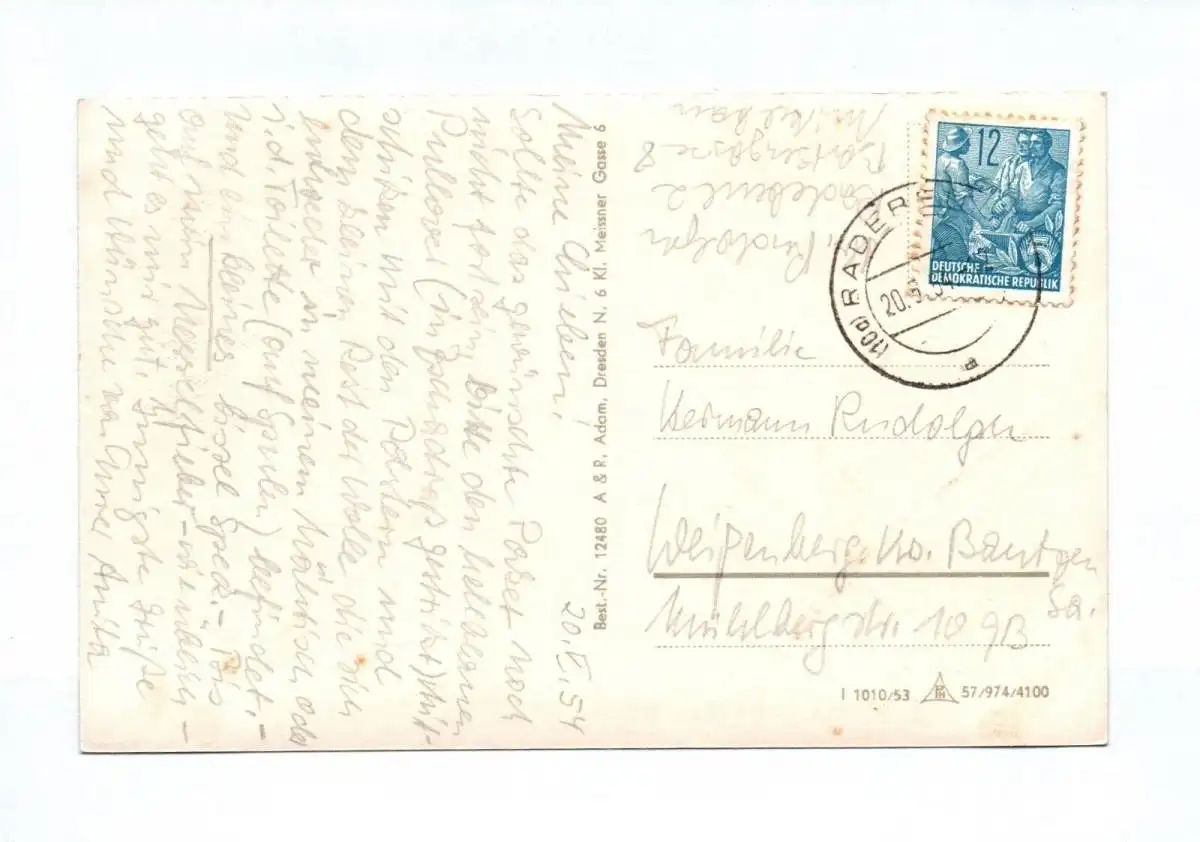 20.V.54
Meine Lieben!
Sollte das gewünschte Paket noch
nicht fort sein, bitte den hellblauen
Pullover (in Patent gestrickt) mit-
schicken mit den Mustern und
dem kleinen Rest der Wolle, die sich
entweder in meinem Nähtisch oder
i.d. Toilette (auf Spulen) befindet.-
Und ein kleines bissel Speck.- Bis
auf mein
geht es mir gut. Innigste Grüße
und Wünsche von Eurer Anita
Best.-Nr. 12480 A & R. Adam, Dresden N. 6 Kl. Meissner Gasse 6
Rudolph
Radebeul 2
8
12
5
DEUTSCHE
DEMOKRATISCHE REPUBLIK
(10a) RADEBE
20.5.54
a
Familie
Hermann Rudolph
Weißenberg, Kr. Bautzen
Sa.
Mühlbergstr. 109B
I 1010/53 57/974/4100